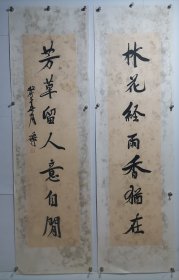 林花經雨香猶在
芳草留人意自閒